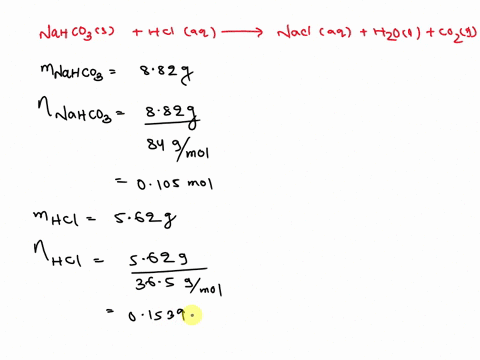 NaHCO3(s) + HCl (aq) ⟶ NaCl (aq) + H2O(l) + CO2(g)
mNaHCO3 = 8.82g
nNaHCO3 = 8.82g
84 g/mol
= 0.105 mol
mHCl = 5.62g
nHCl = 5.62g
36.5 g/mol
= 0.1539